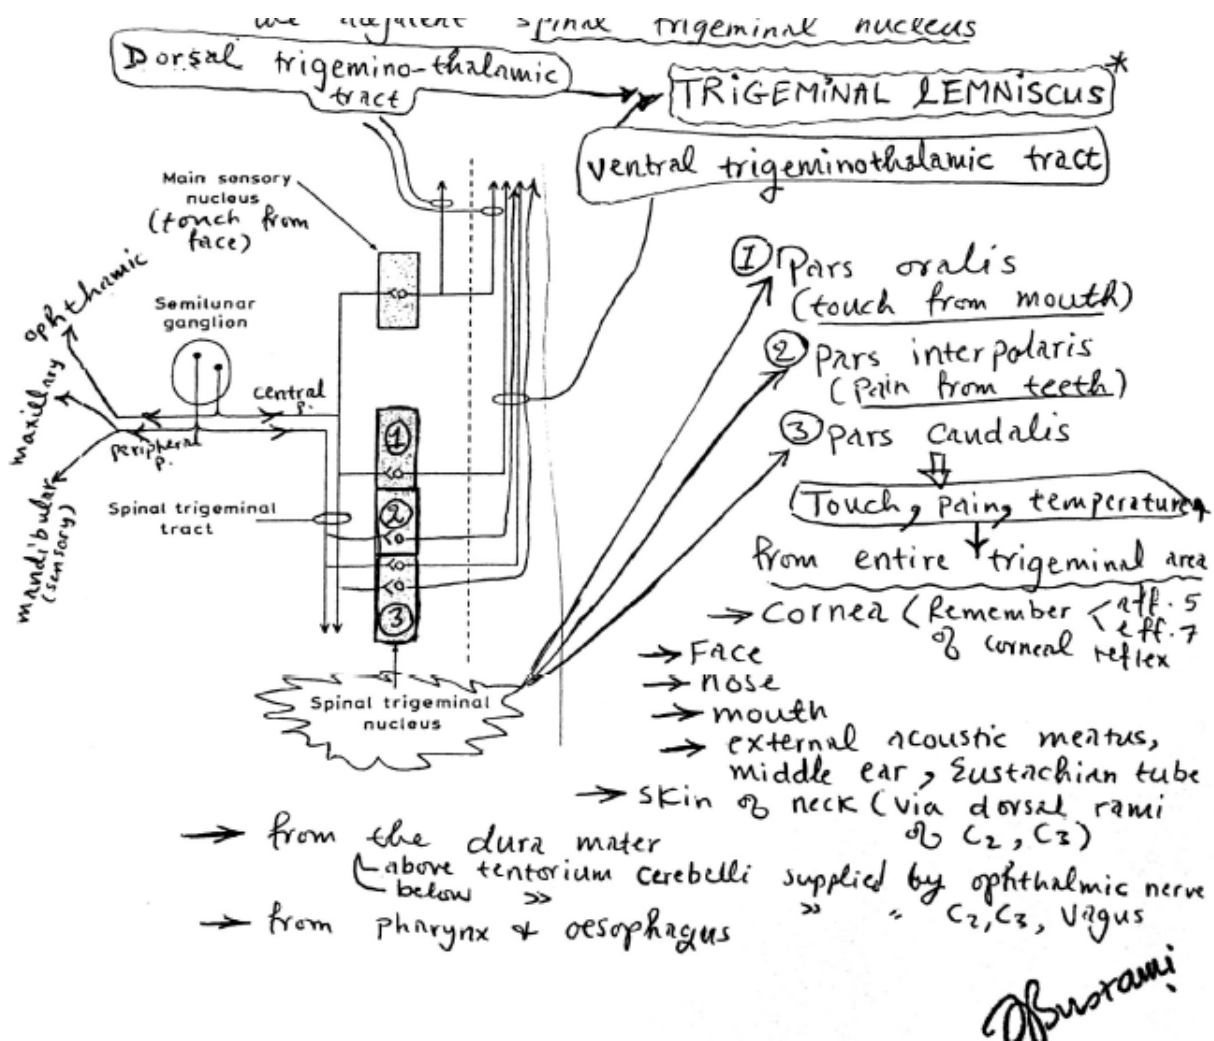 the adjacent spinal trigeminal nucleus
Dorsal trigemino-thalamic
tract
TRIGEMINAL LEMNISCUS*
ventral trigeminothalamic tract
Main sensory
nucleus
(touch from
face)
Semilunar
ganglion
ophthamic
maxillary
mandibular
(sensory)
central
p.
peripheral
p.
Spinal trigeminal
tract
1
2
3
Spinal trigeminal
nucleus
① Pars oralis
(touch from mouth)
② Pars interpolaris
(Pain from teeth)
③ Pars caudalis
Touch, pain, temperature
from entire trigeminal area
→ cornea (Remember aff. 5
eff. 7
of corneal reflex
→ Face
→ nose
→ mouth
→ external acoustic meatus,
middle ear, Eustachian tube
→ skin of neck (via dorsal rami
of C2, C3)
→ from the dura mater
above tentorium cerebelli supplied by ophthalmic nerve
below » » " C2, C3, Vagus
→ from pharynx & oesophagus
Bustami